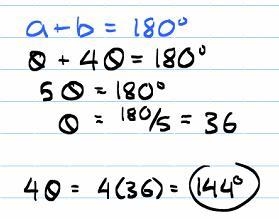 a+b = 180°
θ + 4θ = 180°
5θ = 180°
θ = 180/5 = 36
4θ = 4(36) = 144°